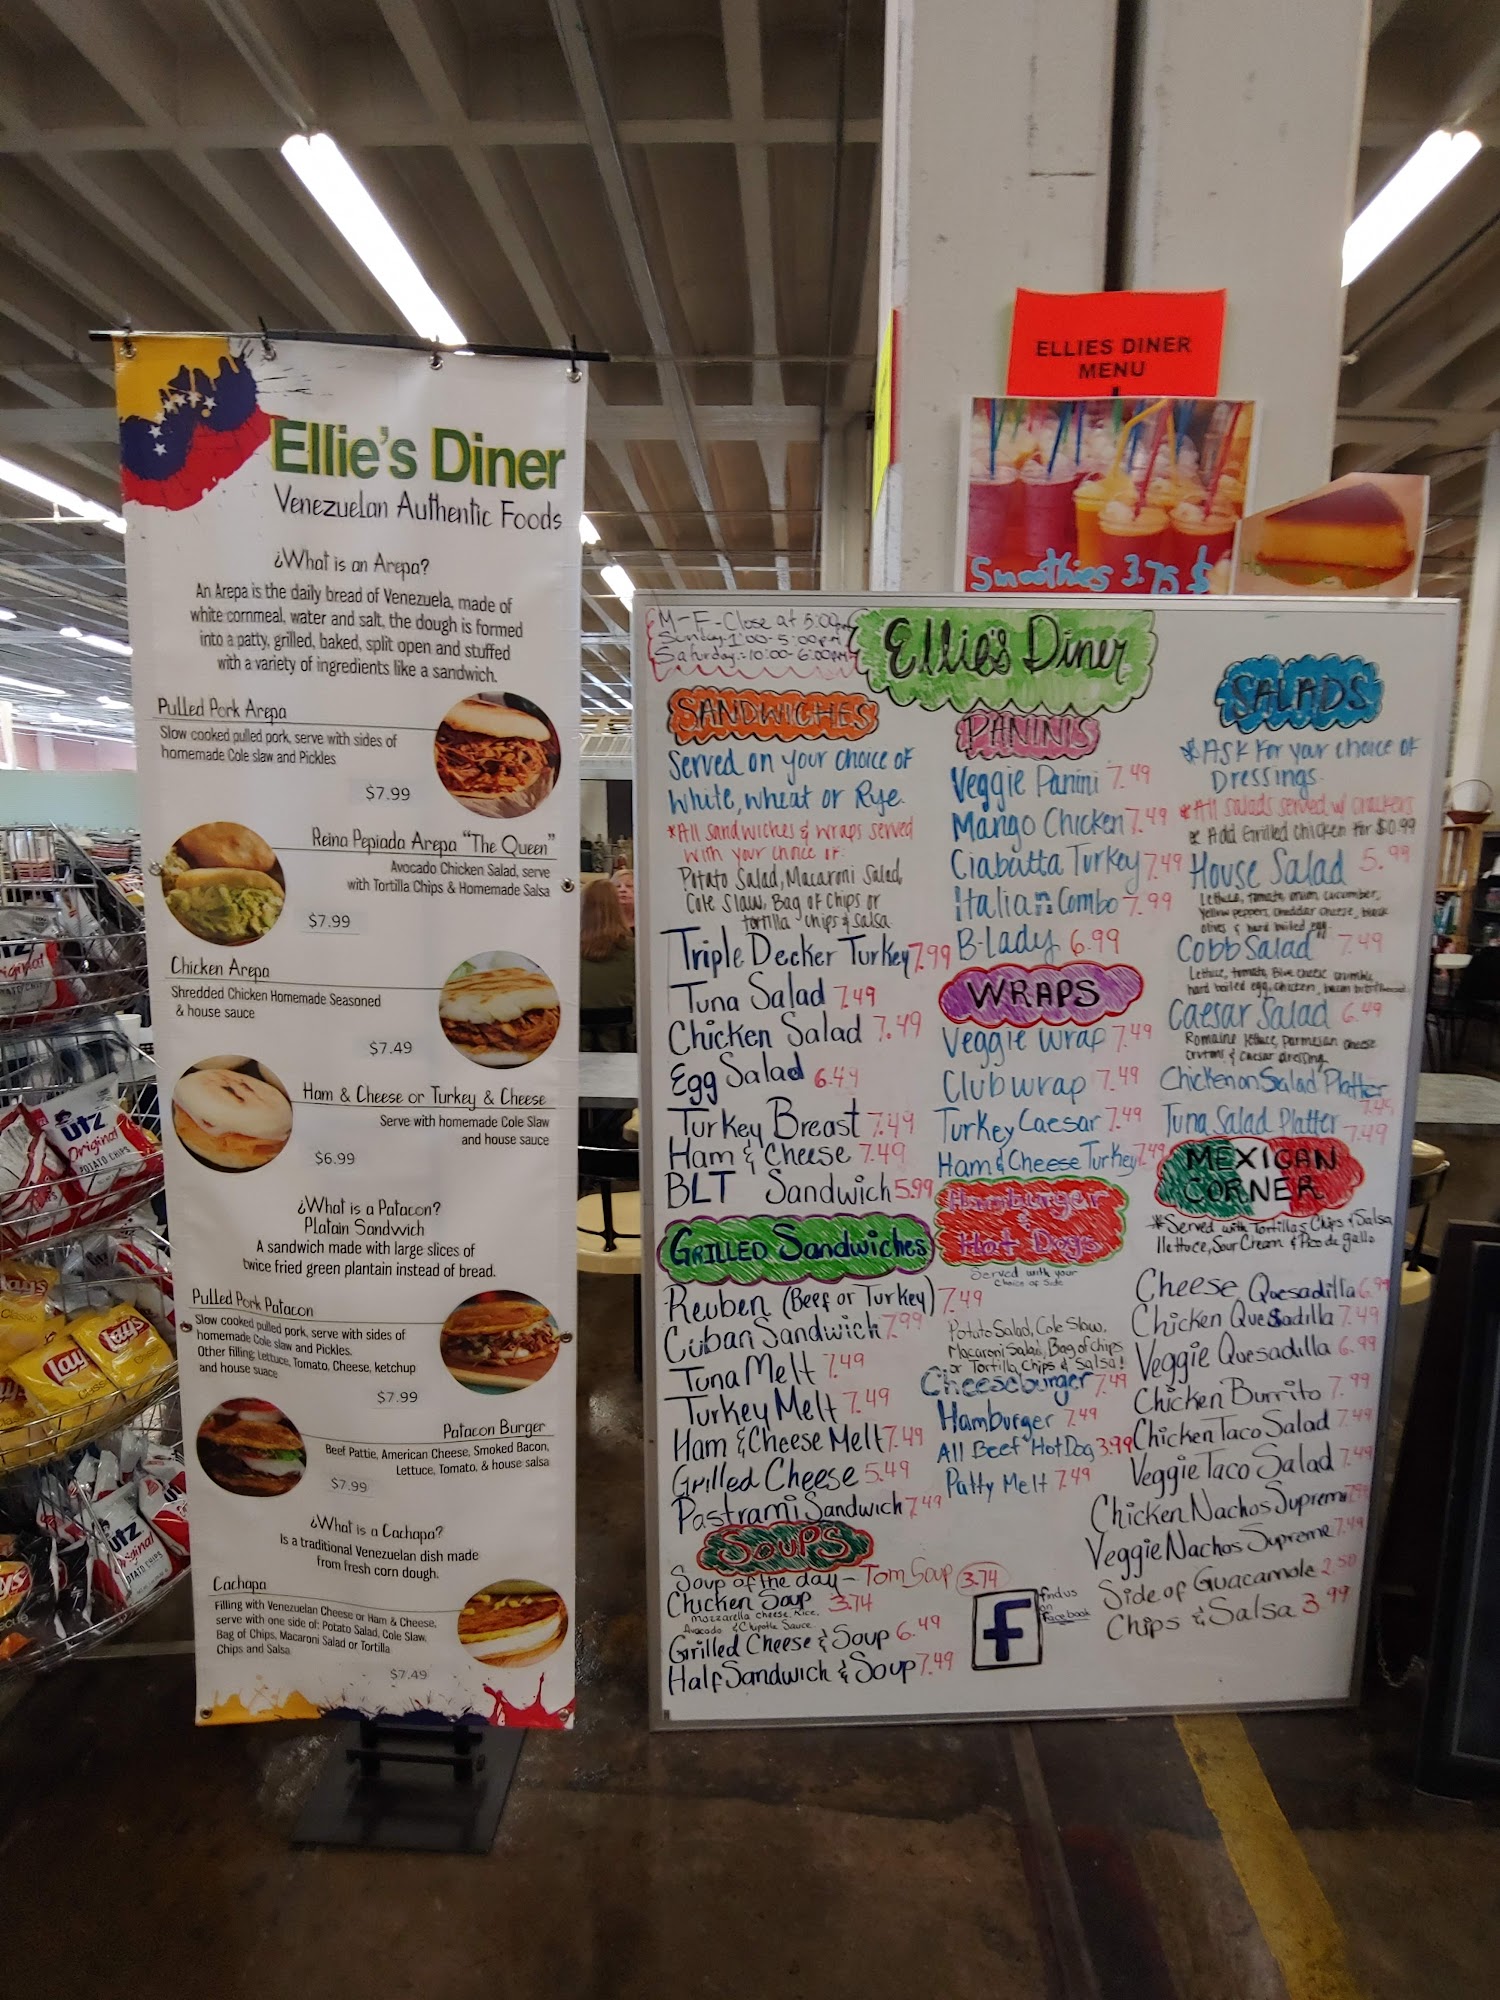 Ellie's Diner
Venezuelan Authentic Foods
¿What is an Arepa?
An Arepa is the daily bread of Venezuela, made of
white cornmeal, water and salt, the dough is formed
into a patty, grilled, baked, split open and stuffed
with a variety of ingredients like a sandwich.
Pulled Pork Arepa
Slow cooked pulled pork, serve with sides of
homemade Cole slaw and Pickles
$7.99
Reina Pepiada Arepa "The Queen"
Avocado Chicken Salad, serve
with Tortilla Chips & Homemade Salsa
$7.99
Chicken Arepa
Shredded Chicken Homemade Seasoned
& house sauce
$7.49
Ham & Cheese or Turkey & Cheese
Serve with homemade Cole Slaw
and house sauce
$6.99
¿What is a Patacon?
Platain Sandwich
A sandwich made with large slices of
twice fried green plantain instead of bread.
Pulled Pork Patacon
Slow cooked pulled pork, serve with sides of
homemade Cole slaw and Pickles.
Other filling: Lettuce, Tomato, Cheese, ketchup
and house suace
$7.99
Patacon Burger
Beef Pattie, American Cheese, Smoked Bacon,
Lettuce, Tomato, & house salsa
$7.99
¿What is a Cachapa?
Is a traditional Venezuelan dish made
from fresh corn dough.
Cachapa
Filling with Venezuelan Cheese or Ham & Cheese,
serve with one side of: Potato Salad, Cole Slaw,
Bag of Chips, Macaroni Salad or Tortilla
Chips and Salsa
$7.49
ELLIES DINER
MENU
Smoothies 3.75 $
M-F-Close at 5:00pm
Sunday-1:00-5:00pm
Saturday:-10:00-6:00pm
Ellie's Diner
SANDWICHES
Served on your choice of
White, wheat or Rye.
*All sandwiches & wraps served
with your choice of:
Potato Salad, Macaroni Salad,
Cole Slaw, Bag of Chips or
tortilla chips & salsa
Triple Decker Turkey 7.99
Tuna Salad 7.49
Chicken Salad 7.49
Egg Salad 6.49
Turkey Breast 7.49
Ham & Cheese 7.49
BLT Sandwich 5.99
GRILLED Sandwiches
Reuben (Beef or Turkey) 7.49
Cuban Sandwich 7.99
Tuna Melt 7.49
Turkey Melt 7.49
Ham & Cheese Melt 7.49
Grilled Cheese 5.49
Pastrami Sandwich 7.49
SOUPS
Soup of the day - Tom Soup 3.74
Chicken Soup 3.74
Mozzarella cheese, Rice,
Avocado & Chipotle Sauce
Grilled Cheese & Soup 6.49
Half Sandwich & Soup 7.49
PANINIS
Veggie Panini 7.49
Mango Chicken 7.49
Ciabatta Turkey 7.49
Italian Combo 7.99
B-Lady 6.99
WRAPS
Veggie Wrap 7.49
Club wrap 7.49
Turkey Caesar 7.49
Ham & Cheese Turkey 7.49
Hamburger
&
Hot Dogs
Served with your
Choice of Side
Potato Salad, Cole Slaw,
Macaroni Salad, Bag of chips
or Tortilla Chips & Salsa!
Cheeseburger 7.49
Hamburger 7.49
All Beef Hot Dog 3.99
Patty Melt 7.49
f
find us
on
Facebook
SALADS
*ASK For your choice of
Dressings.
*All salads served w/ crackers
* Add Grilled Chicken for $0.99
House Salad 5.99
Lettuce, tomato, onion, cucumber,
Yellow peppers, cheddar cheese, black
olives & hard boiled egg
Cobb Salad 7.49
Lettuce, tomato, Blue cheese crumble,
hard boiled egg, chicken, bacon
Caesar Salad 6.49
Romaine lettuce, parmesan cheese
crutons & caesar dressing
Chicken on Salad Platter 7.49
Tuna Salad Platter 7.49
MEXICAN
CORNER
*Served with Tortillas Chips & Salsa
lettuce, Sour Cream & Pico de gallo
Cheese Quesadilla 6.99
Chicken Quesadilla 7.49
Veggie Quesadilla 6.99
Chicken Burrito 7.99
Chicken Taco Salad 7.49
Veggie Taco Salad 7.49
Chicken Nachos Supreme 7.94
Veggie Nachos Supreme 7.49
Side of Guacamole 2.50
Chips & Salsa 3.99
utz
Original
POTATO CHIPS
Lay's
Classic
Lay's
utz
Original
POTATO CHIPS